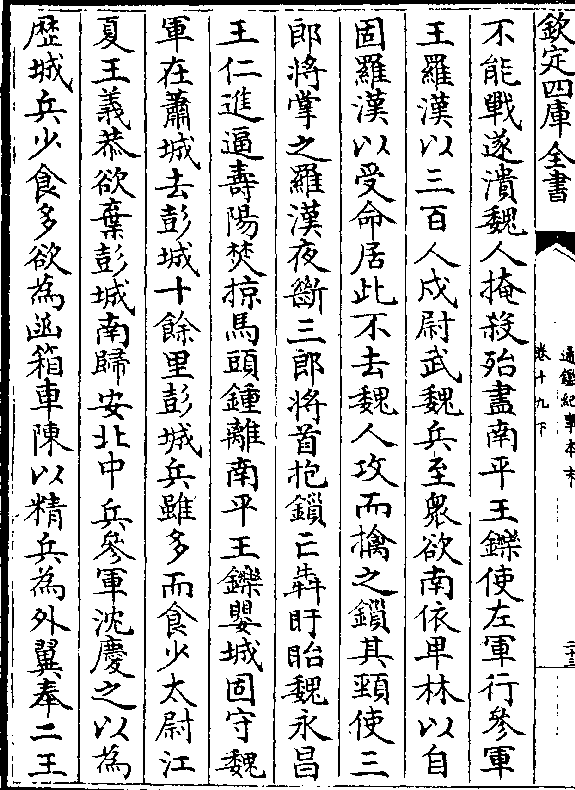 欽定四庫全書
通鑑紀事本末
卷十九下
二十三
不能戰遂潰魏人掩殺殆盡南平王鑠使左軍行參軍
王羅漢以三百人戍尉武魏兵至衆欲南依卑林以自
固羅漢以受命居此不去魏人攻而擒之鎖其頸使三
郎將掌之羅漢夜斷三郎將首抱鎖亡奔盱眙魏永昌
王仁進逼壽陽焚掠馬頭鍾離南平王鑠嬰城固守魏
軍在蕭城去彭城十餘里彭城兵雖多而食少太尉江
夏王義恭欲棄彭城南歸安北中兵參軍沈慶之以為
歷城兵少食多欲為函箱車陳以精兵為外翼奉二王